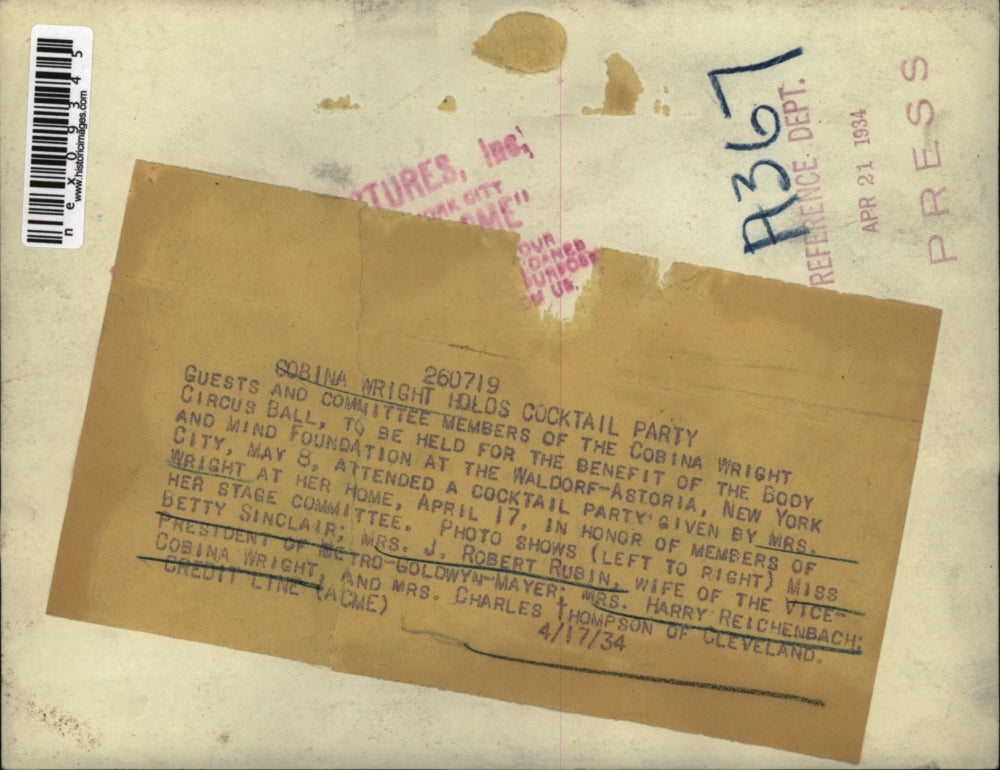 nex09345
www.historicimages.com
TURES, Inc.
CITY
ME"
OUR
LOANED
PURPOSE
US.
A367
REFERENCE DEPT.
APR 21 1934
PRESS
260719
COBINA WRIGHT HOLDS COCKTAIL PARTY
GUESTS AND COMMITTEE MEMBERS OF THE COBINA WRIGHT
CIRCUS BALL, TO BE HELD FOR THE BENEFIT OF THE BODY
AND MIND FOUNDATION AT THE WALDORF-ASTORIA, NEW YORK
CITY, MAY 8, ATTENDED A COCKTAIL PARTY GIVEN BY MRS.
WRIGHT AT HER HOME, APRIL 17, IN HONOR OF MEMBERS OF
HER STAGE COMMITTEE. PHOTO SHOWS (LEFT TO RIGHT) MISS
BETTY SINCLAIR; MRS. J. ROBERT RUBIN, WIFE OF THE VICE-
PRESIDENT OF METRO-GOLDWYN-MAYER; MRS. HARRY REICHENBACH;
COBINA WRIGHT, AND MRS. CHARLES THOMPSON OF CLEVELAND.
CREDIT LINE (ACME) 4/17/34